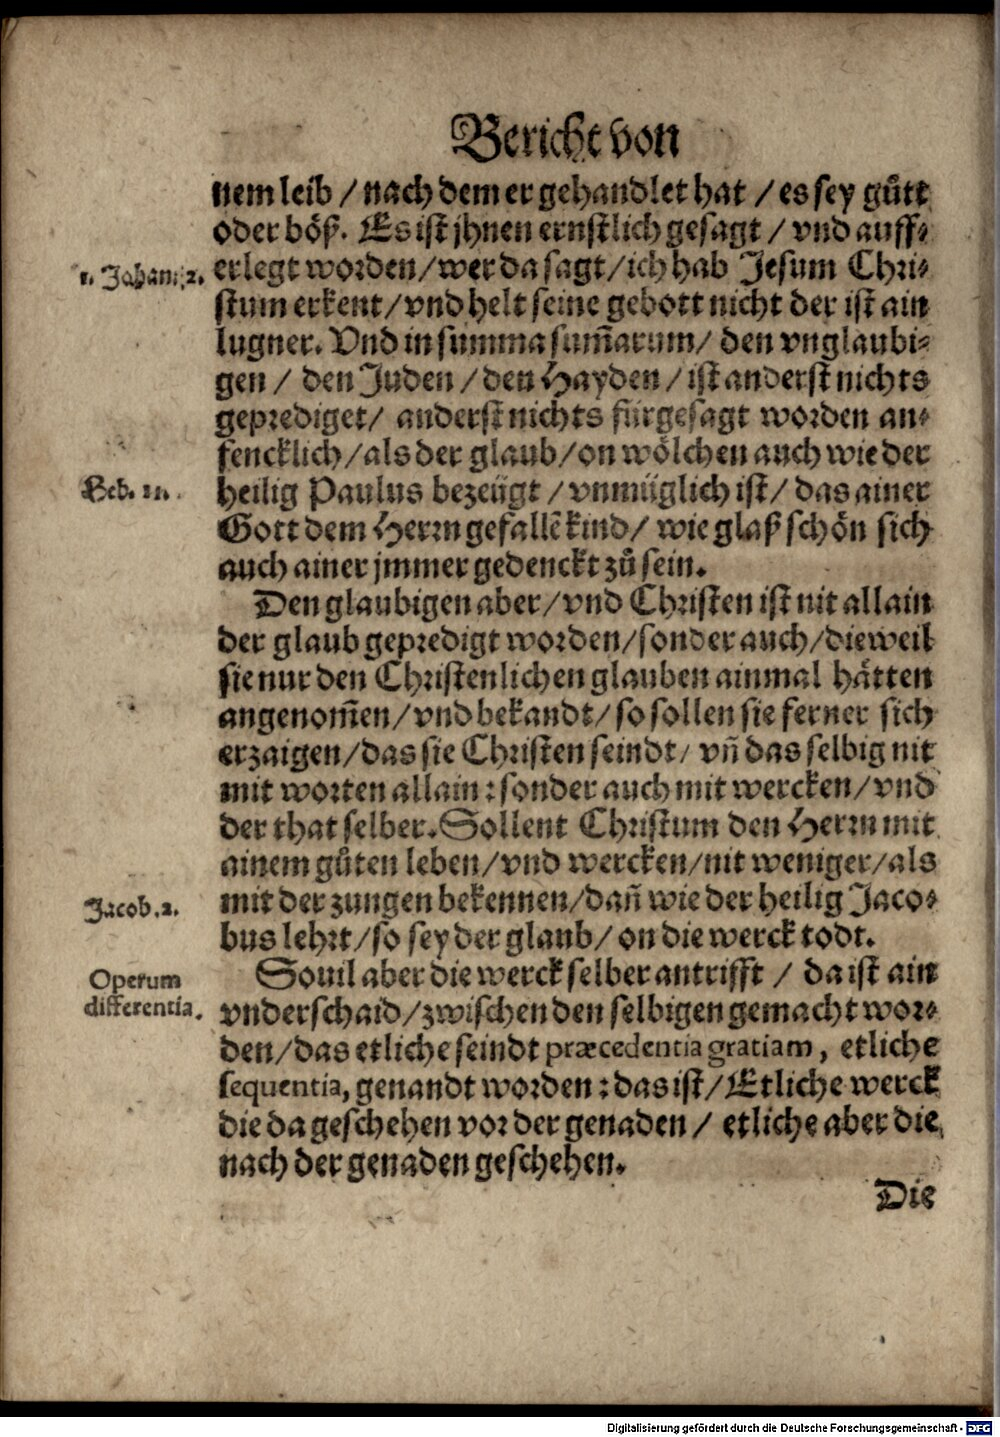 Bericht von
nem leib / nach dem er gehandlet hat / es sey guͤtt
oder boͤß. Es ist jhnen ernstlich gesagt / vnd auff⸗
1. Johan. 2.
erlegt worden / wer da sagt / ich hab Jesum Chri⸗
stum erkent / vnd helt seine gebott nicht der ist ain
lugner. Vnd in summa sum̃arum / den vnglaubi⸗
gen / den Juden / den Hayden / ist anderst nichts
geprediget / anderst nichts fürgesagt worden an⸗
fencklich / als der glaub / on woͤlchen auch wie der
Heb. 11.
heilig Paulus bezeügt / vnmüglich ist / das ainer
Gott dem Herrn gefallẽ kind / wie glaß schoͤn sich
auch ainer jmmer gedenckt zuͦ sein.
Den glaubigen aber / vnd Christen ist nit allain
der glaub gepredigt worden / sonder auch / dieweil
sie nur den Christenlichen glauben ainmal haͤtten
angenom̃en / vnd bekandt / so sollen sie ferner sich
erzaigen / das sie Christen seindt / vñ das selbig nit
mit worten allain : sonder auch mit wercken / vnd
der that selber. Sollent Christum den Herrn mit
ainem guͦten leben / vnd wercken / nit weniger / als
Jacob. 2.
mit der zungen bekennen / dañ wie der heilig Jaco⸗
bus lehrt / so sey der glaub / on die werck todt.
Operum
differentia.
Souil aber die werck selber antrifft / da ist ain
vnderschaid / zwischen den selbigen gemacht wor⸗
den / das etliche seindt præcedentia gratiam, etliche
sequentia, genandt worden : das ist / Etliche werck
die da geschehen vor der genaden / etliche aber die
nach der genaden geschehen.
Die
Digitalisierung gefördert durch die Deutsche Forschungsgemeinschaft - DFG